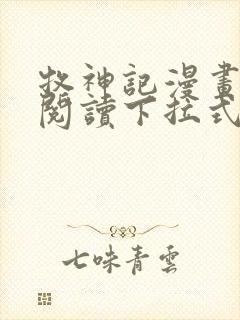 牧神記漫畫
閱讀下拉式
七味青雲